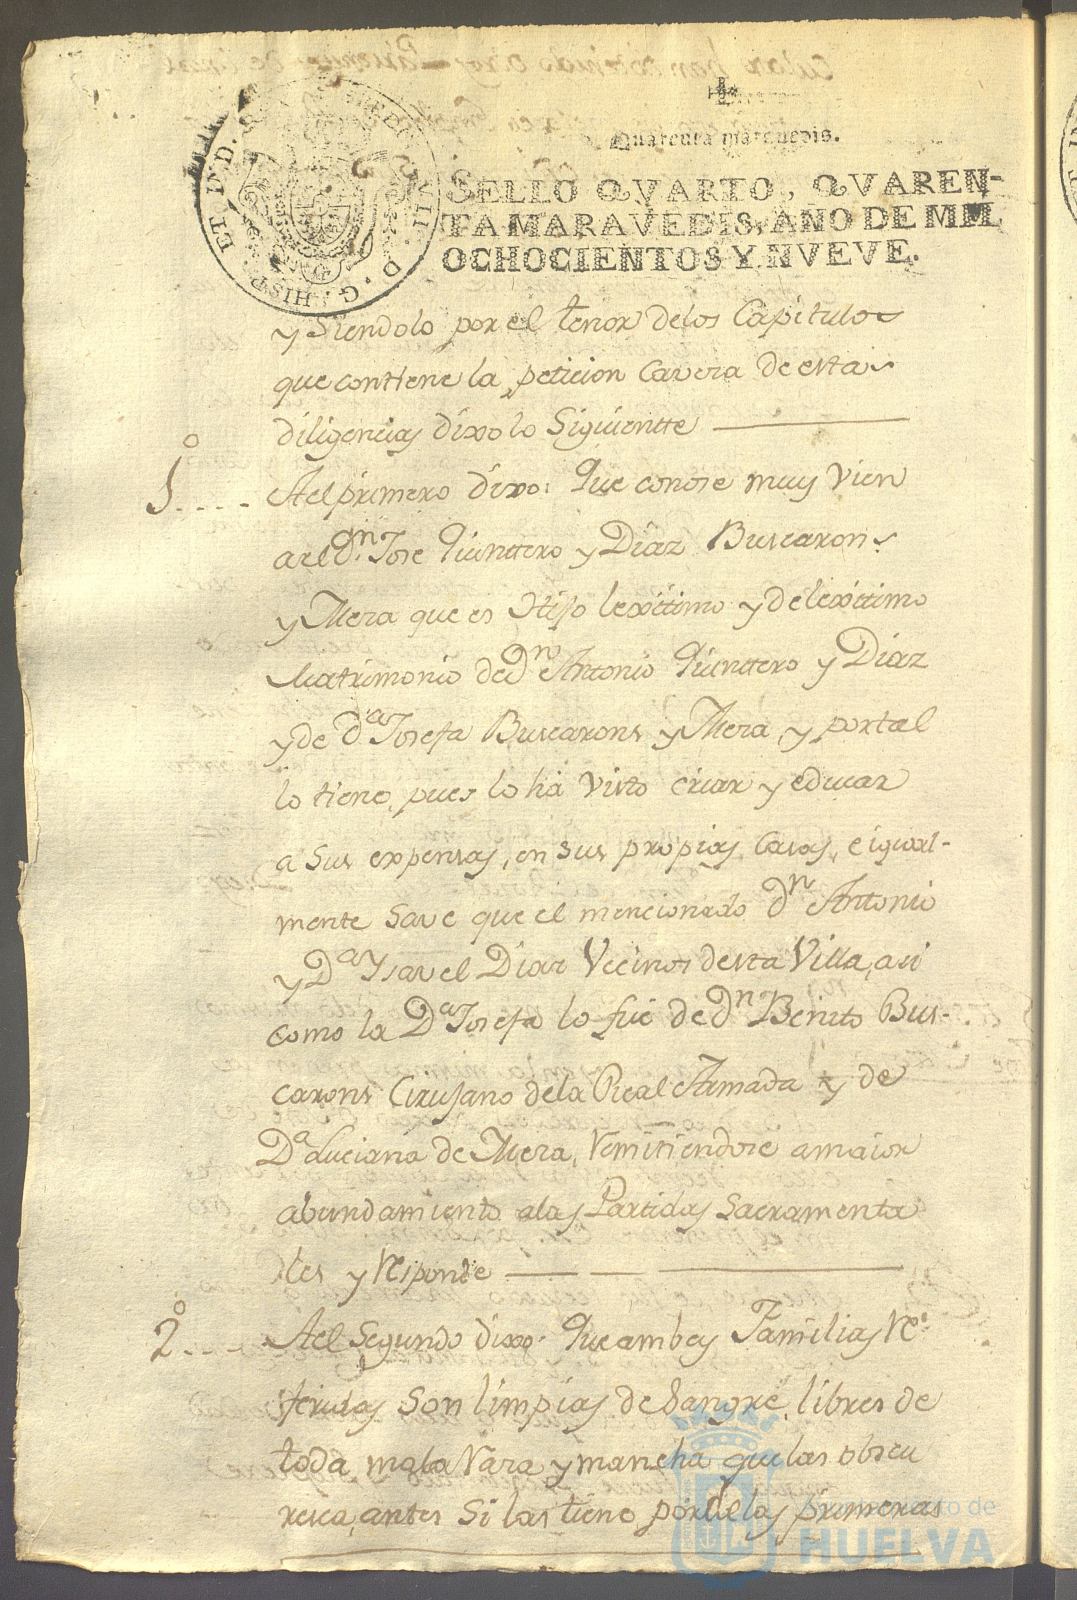 Quarenta maravedis.
SELLO QVARTO, QVAREN-
TA MARAVEDIS, AÑO DE MIL
OCHOCIENTOS Y NVEVE.
ET D. D.
VII. D. G. HISP.
y Siendolo por el tenor delos Capitulos
que contiene la peticion Cavera de estas
diligencias dixo lo Siguientte
1º.... A el primero dixo: Que conose muy Vien
a el Dn. Jose Quinttero y Diaz Buscarons
y Mera que es Hijo lexittimo y de lexittimo
Matrimonio de Dn Antonio Quinttero y Diaz
y de Da Josefa Buscarons y Mera, y por tal
lo tiene, pues lo ha Visto criar y educar
a Sus expensas, en sus propias Casas, e igual-
mente Save que el mencionado Dn Antonio
y Da Ysavel Diaz Vecinos desta Villa, asi
como la Da Josefa lo fue de Dn Benito Bus-
carons Cirujano dela Real Armada y de
Da Luciana de Mera, Remitiendose a maior
abundamiento alas Partidas Sacramenta
les y Responde
2º.... A el Segundo dixo: Que ambas Familias Re-
feridas Son limpias de Sangre, libres de
toda mala Raza y mancha que las obscu
resca, antes Si las tiene por de las primeras
Ayuntamiento de
HUELVA